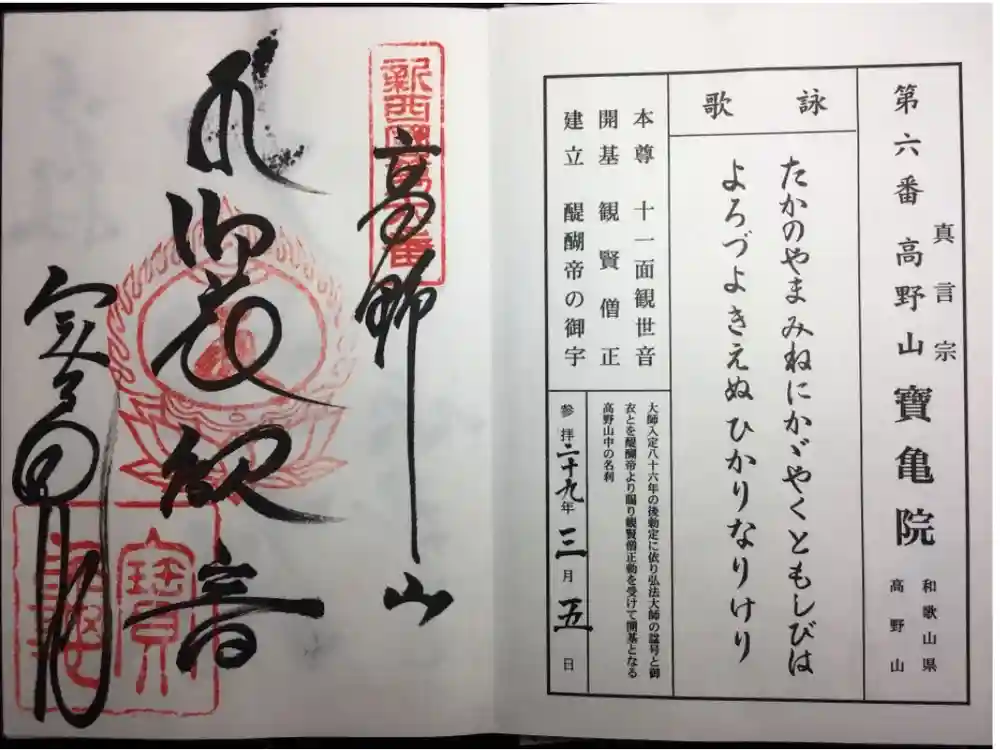 第六番 高野山 寶亀院
真言宗
和歌山県
高野山
詠歌
たかのやまみねにかゞやくともしびは
よろづよきえぬひかりなりけり
本尊 十一面観世音
開基 観賢僧正
建立 醍醐帝の御宇
大師入定八十六年の後勅定に依り弘法大師の諡号と御
衣とを醍醐帝より賜り観賢僧正勅を受けて開基となる
高野山中の名刹
参拝二十九年三月五日
新西國第六番
高野山
観音